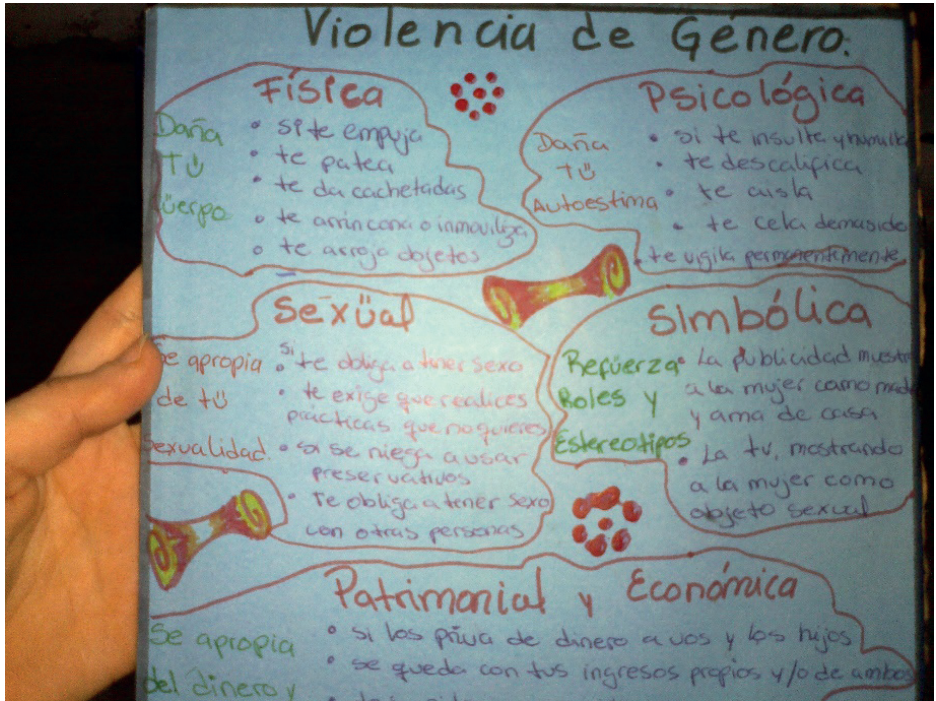 Violencia de Género.
Física
Daña
Tú
Cüerpo
• si te empuja
• te patea
• te da cachetadas
• te arrincona o inmoviliza
• te arroja objetos
Psicológica
Daña
Tú
Autoestima
• si te insulta y humilla
• te descalifica
• te aisla
• te cela demasido
• te vigila permanentemente
Sexüal
Se apropia
de tú
Sexualidad
• si te obliga a tener sexo
• te exige que realices
prácticas que no quieres
• si se niega a usar
preservativos
• Te obliga a tener sexo
con otras personas
Simbólica
Refüerza
Roles y
Estereotipos
• La publicidad muestra
a la mujer como madre
y ama de casa
• La tv, mostrando
a la mujer como
objeto sexual
Patrimonial y Económica
Se apropia
del dinero y
• si los priva de dinero a vos y los hijos
• se queda con tus ingresos propios y/o de ambos